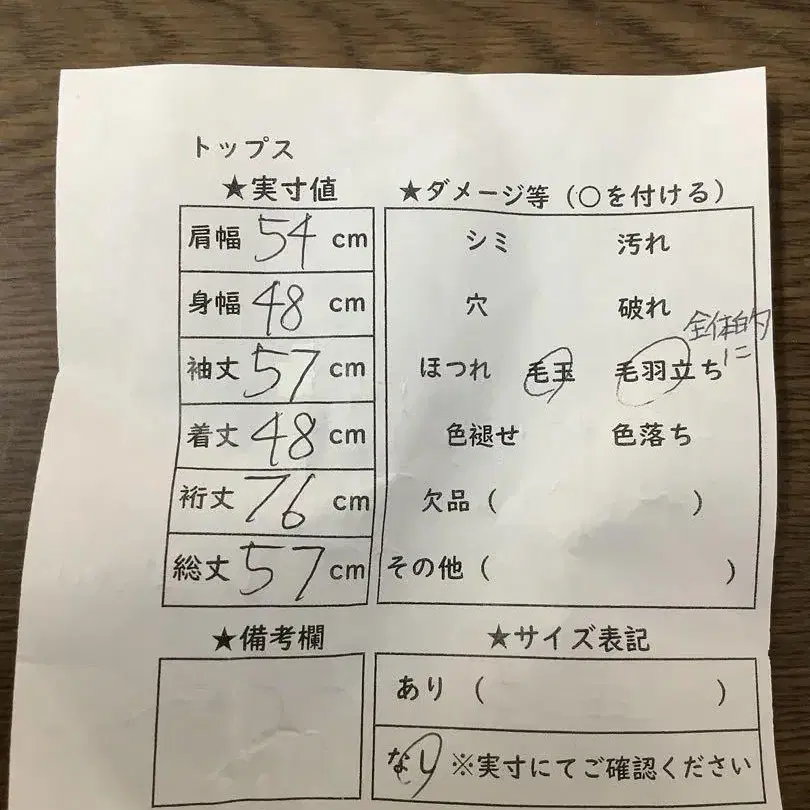 トップス
★実寸値
肩幅 54 cm
身幅 48 cm
袖丈 57 cm
着丈 48 cm
裄丈 76 cm
総丈 57 cm
★備考欄
★ダメージ等(○を付ける)
シミ 汚れ
穴 破れ
全体的
に
ほつれ 毛玉 毛羽立ち
色褪せ 色落ち
欠品( )
その他( )
★サイズ表記
あり ( )
なし ※実寸にてご確認ください